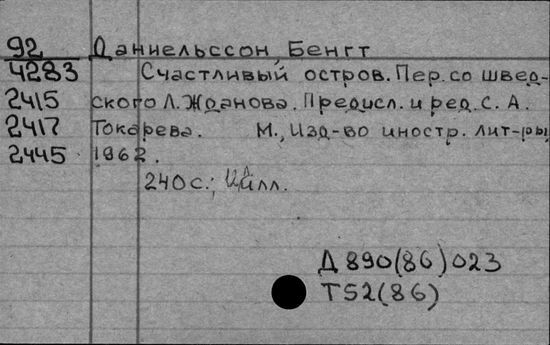 92 Даниельссон, Бенгт
4283 Счастливый остров. Пер. со швед-
2415 ского Л. Жданова. Предисл. и ред. С. А.
2417 Токарева. М., Изд-во иностр. лит-ры,
2445 1962.
240 с.; илл.
Д 890(86)023
Т52(86)